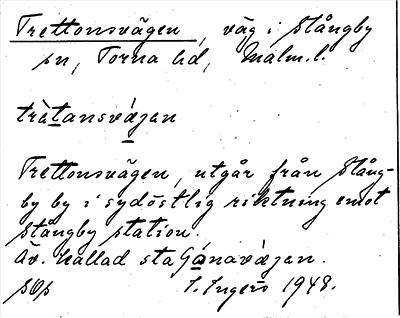 Trettonsvägen, väg i Stångby
sn, Torna hd, Malm.l.
trètansvæ̀jen
Trettonsvägen, utgår från Stång-
by by i sydöstlig riktning emot
Stångby station.
Äv. kallad
sOs I. Ingers 1948.